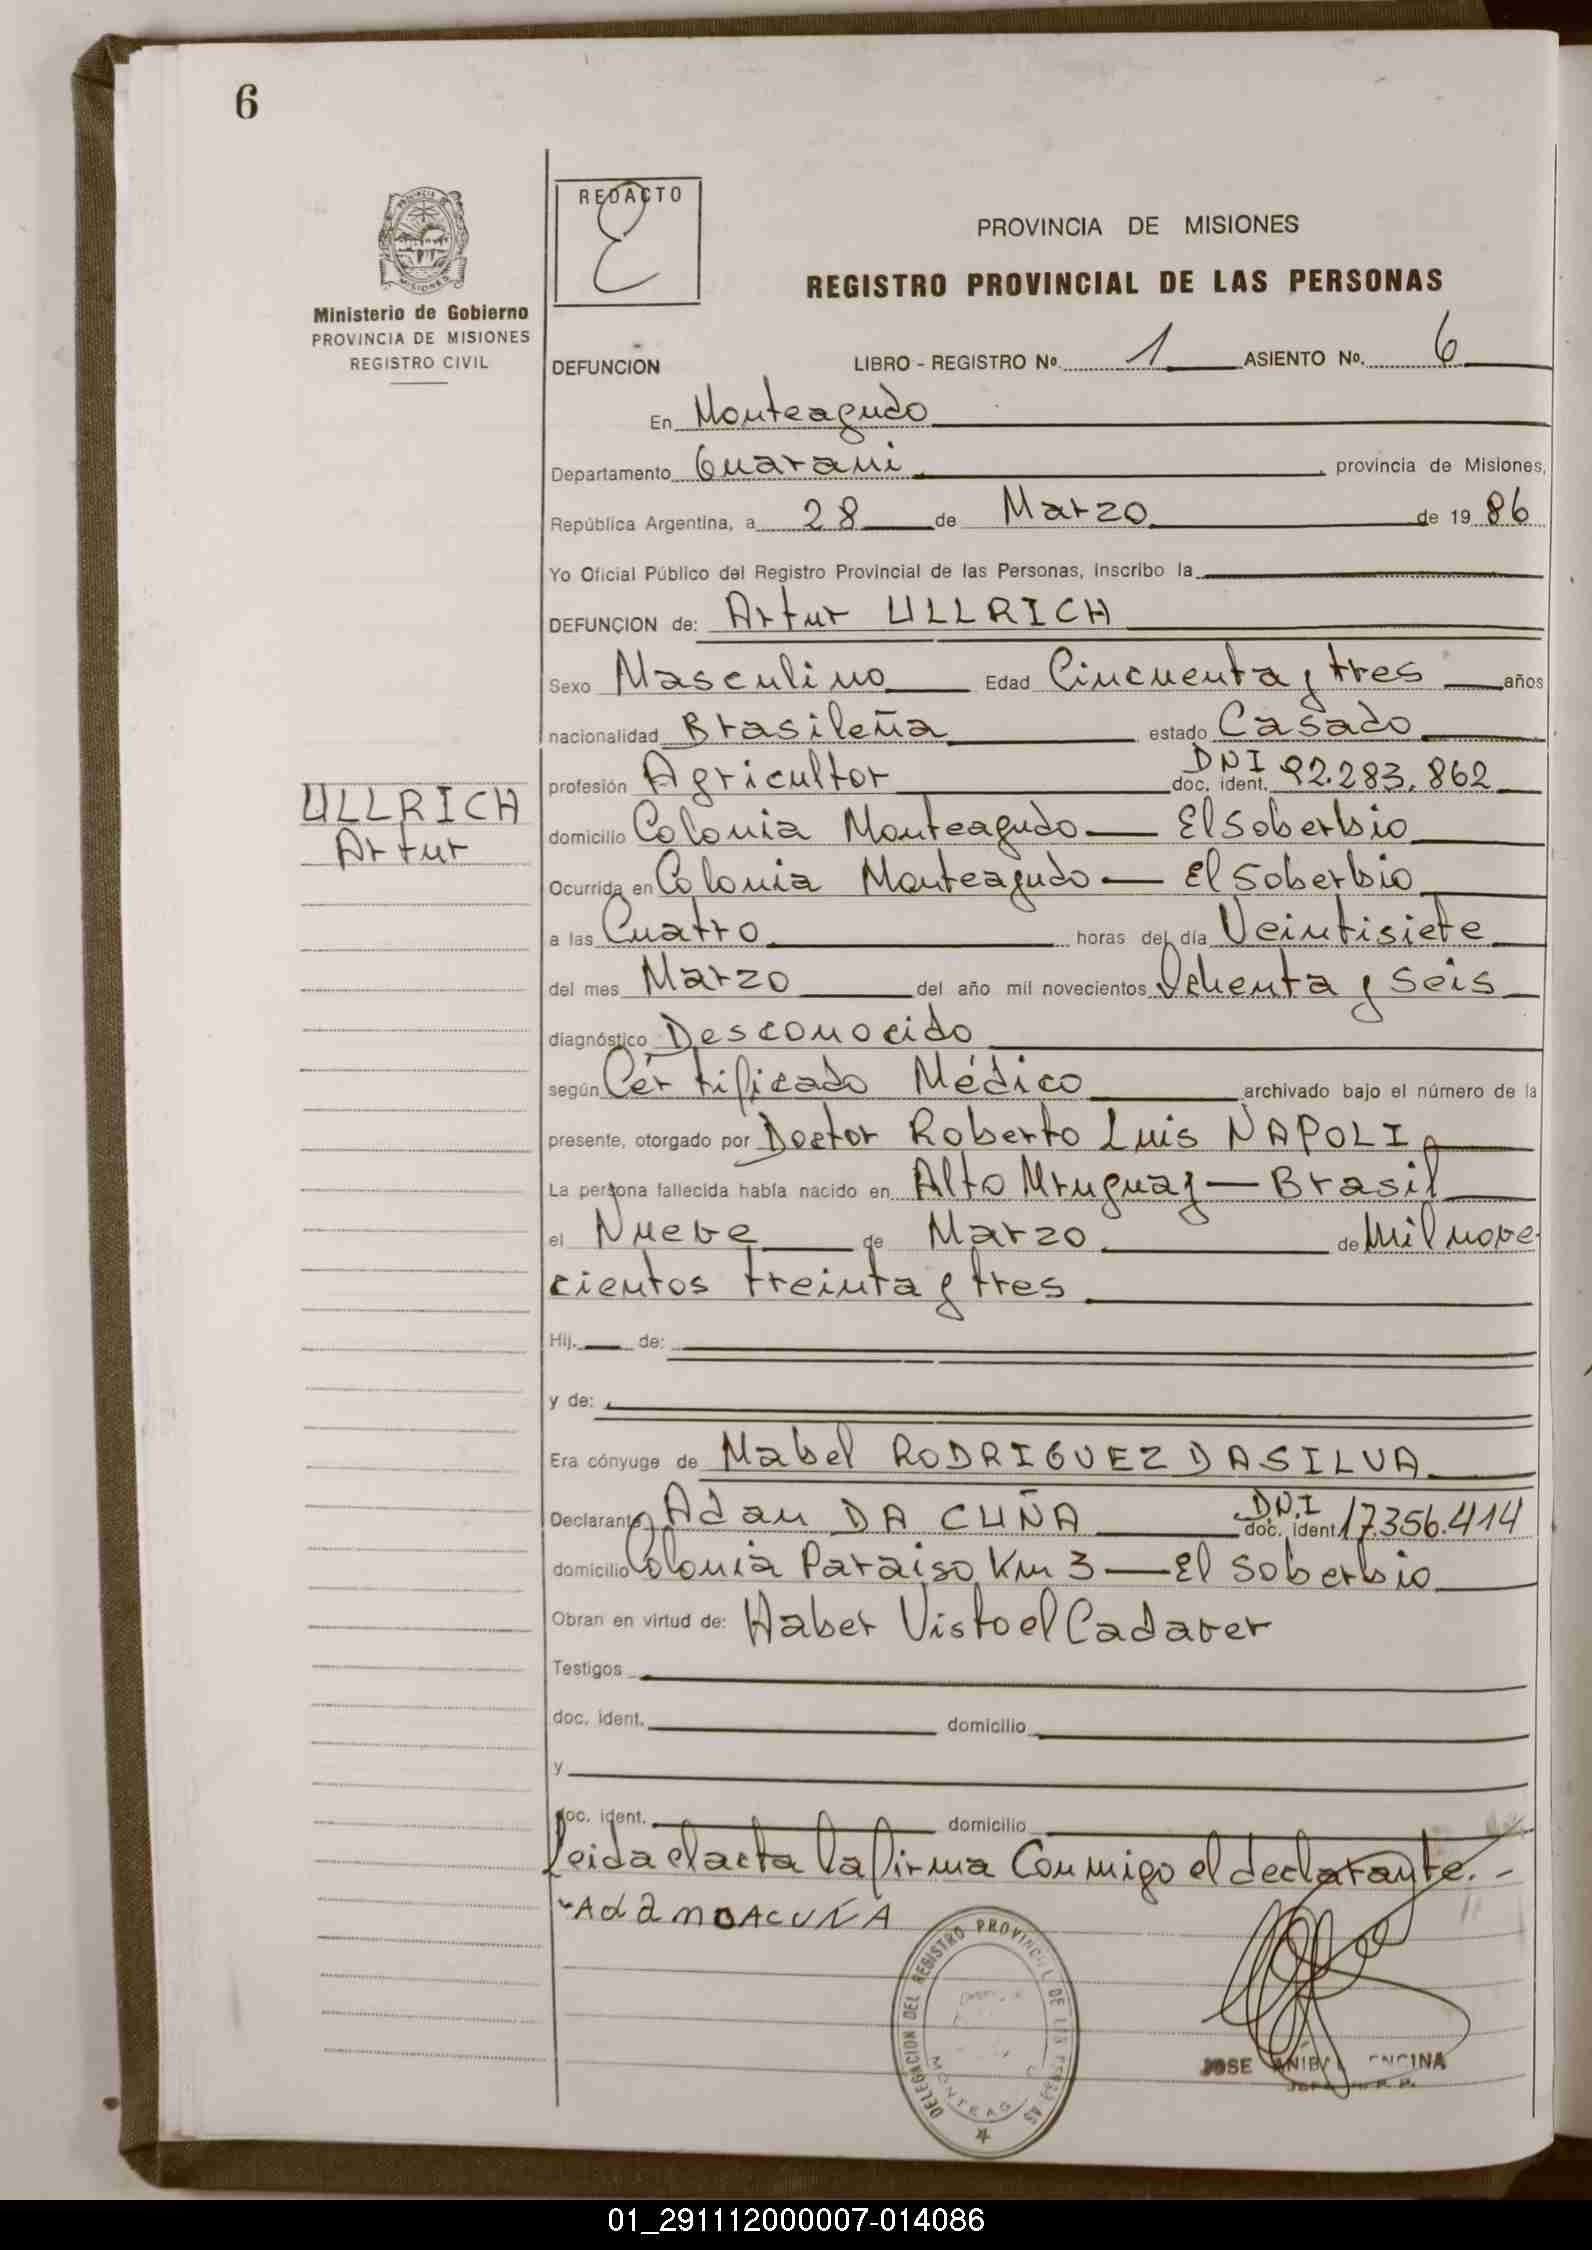 6
REDACTO
PROVINCIA DE MISIONES
REGISTRO PROVINCIAL DE LAS PERSONAS
Ministerio de Gobierno
PROVINCIA DE MISIONES
REGISTRO CIVIL
DEFUNCION LIBRO - REGISTRO Nº. 1 ASIENTO No. 6
En Monteagudo
Departamento Guarani provincia de Misiones,
República Argentina, a 28 de Marzo de 19 86
Yo Oficial Público del Registro Provincial de las Personas, inscribo la
DEFUNCION de: Artur ULLRICH
Sexo Masculino Edad Cincuenta y tres años
nacionalidad Brasileña estado Casado
profesión Agricultor DNI doc. ident. 92.283.862
ULLRICH
Artur
domicilio Colonia Monteagudo — El Soberbio
Ocurrida en Colonia Monteagudo — El Soberbio
a las Cuatro horas del día Veintisiete
del mes Marzo del año mil novecientos Ochenta y seis
diagnóstico Desconocido
según Certificado Médico archivado bajo el número de la
presente, otorgado por Doctor Roberto Luis NAPOLI
La persona fallecida había nacido en Alto Uruguay — Brasil
el Nueve de Marzo de Mil nove
cientos treinta y tres
Hij. de:
y de:
Era cónyuge de Mabel RODRIGUEZ DASILVA
Declarante Adan DA CUÑA D.N.I doc. ident 17.356.414
domicilio Colonia Paraiso Km 3 — El Soberbio
Obran en virtud de: Haber Visto el Cadaver
Testigos
doc. ident. domicilio
y
doc. ident. domicilio
Leida el acta la firma Conmigo el declarante. -
AdanDACUÑA
DELEGACION DEL REGISTRO PROVINCIAL DE LAS PERSONAS
JOSE ANIBAL ENCINA
01_291112000007-014086